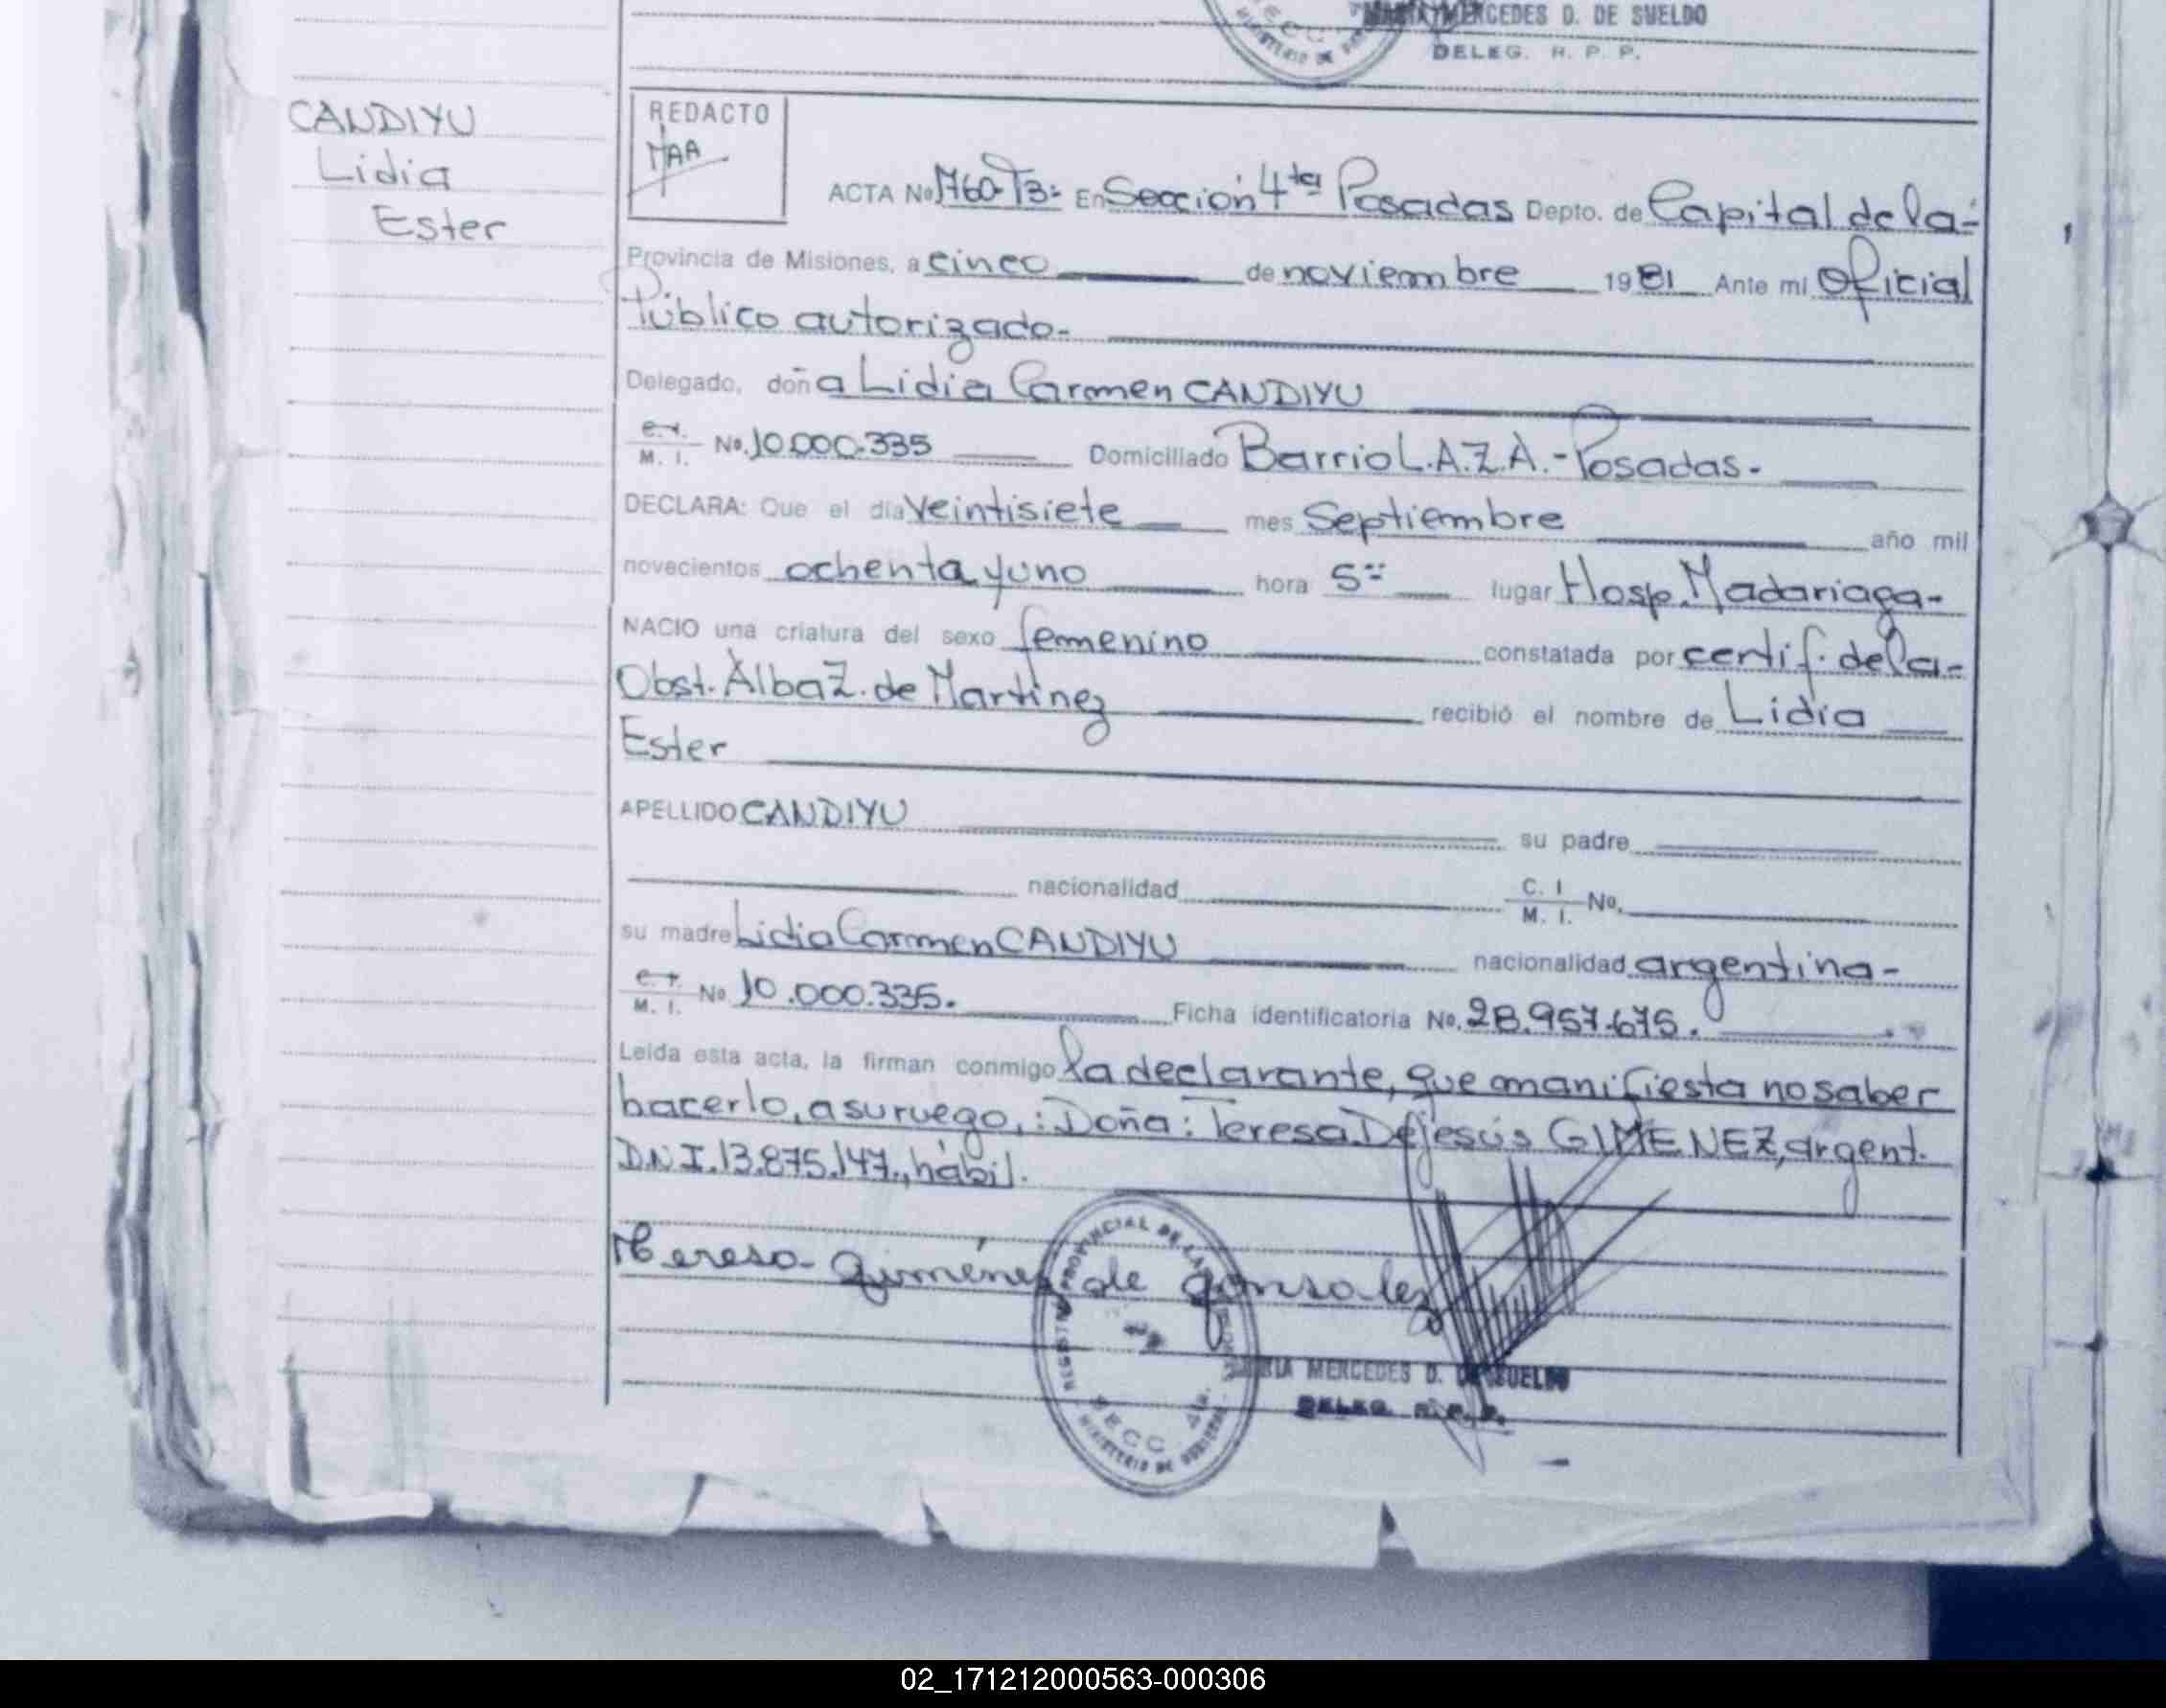 MARIA MERCEDES D. DE SUELDO
DELEG. R. P. P.
CANDIYU
Lidia
Ester
REDACTO
MAA
ACTA No 1760-T3- En Sección 4ta Posadas Depto. de Capital de la-
Provincia de Misiones, a cinco de noviembre 1981 Ante mi Oficial
Público autorizado-
Delegado, doña Lidia Carmen CANDIYU
M. I. No. 10.000.335 Domiciliado Barrio L.A.Z.A.-Posadas-
DECLARA: Que el día veintisiete mes Septiembre año mil
novecientos ochenta y uno hora 5 lugar Hosp. Madariaga-
NACIO una criatura del sexo femenino constatada por certif. de la-
Obst. Alba Z. de Martínez recibió el nombre de Lidia
Ester
APELLIDO CANDIYU su padre
nacionalidad C. I. M. I. No.
su madre Lidia Carmen CANDIYU nacionalidad argentina-
M. I. No 10.000.335. Ficha identificatoria No. 28.957.675.
Leida esta acta, la firman conmigo la declarante, que manifiesta no saber
hacerlo, a su ruego,: Doña: Teresa De Jesús GIMENEZ, argent.
D.N.I. 13.875.147., hábil.
Teresa Giménez de Gonzalez
REGISTRO PROVINCIAL DE LAS
SECC 4ta.
MINISTERIO DE GOBIERNO
MARIA MERCEDES D. DE SUELDO
DELEG. R. P. P.
02_171212000563-000306